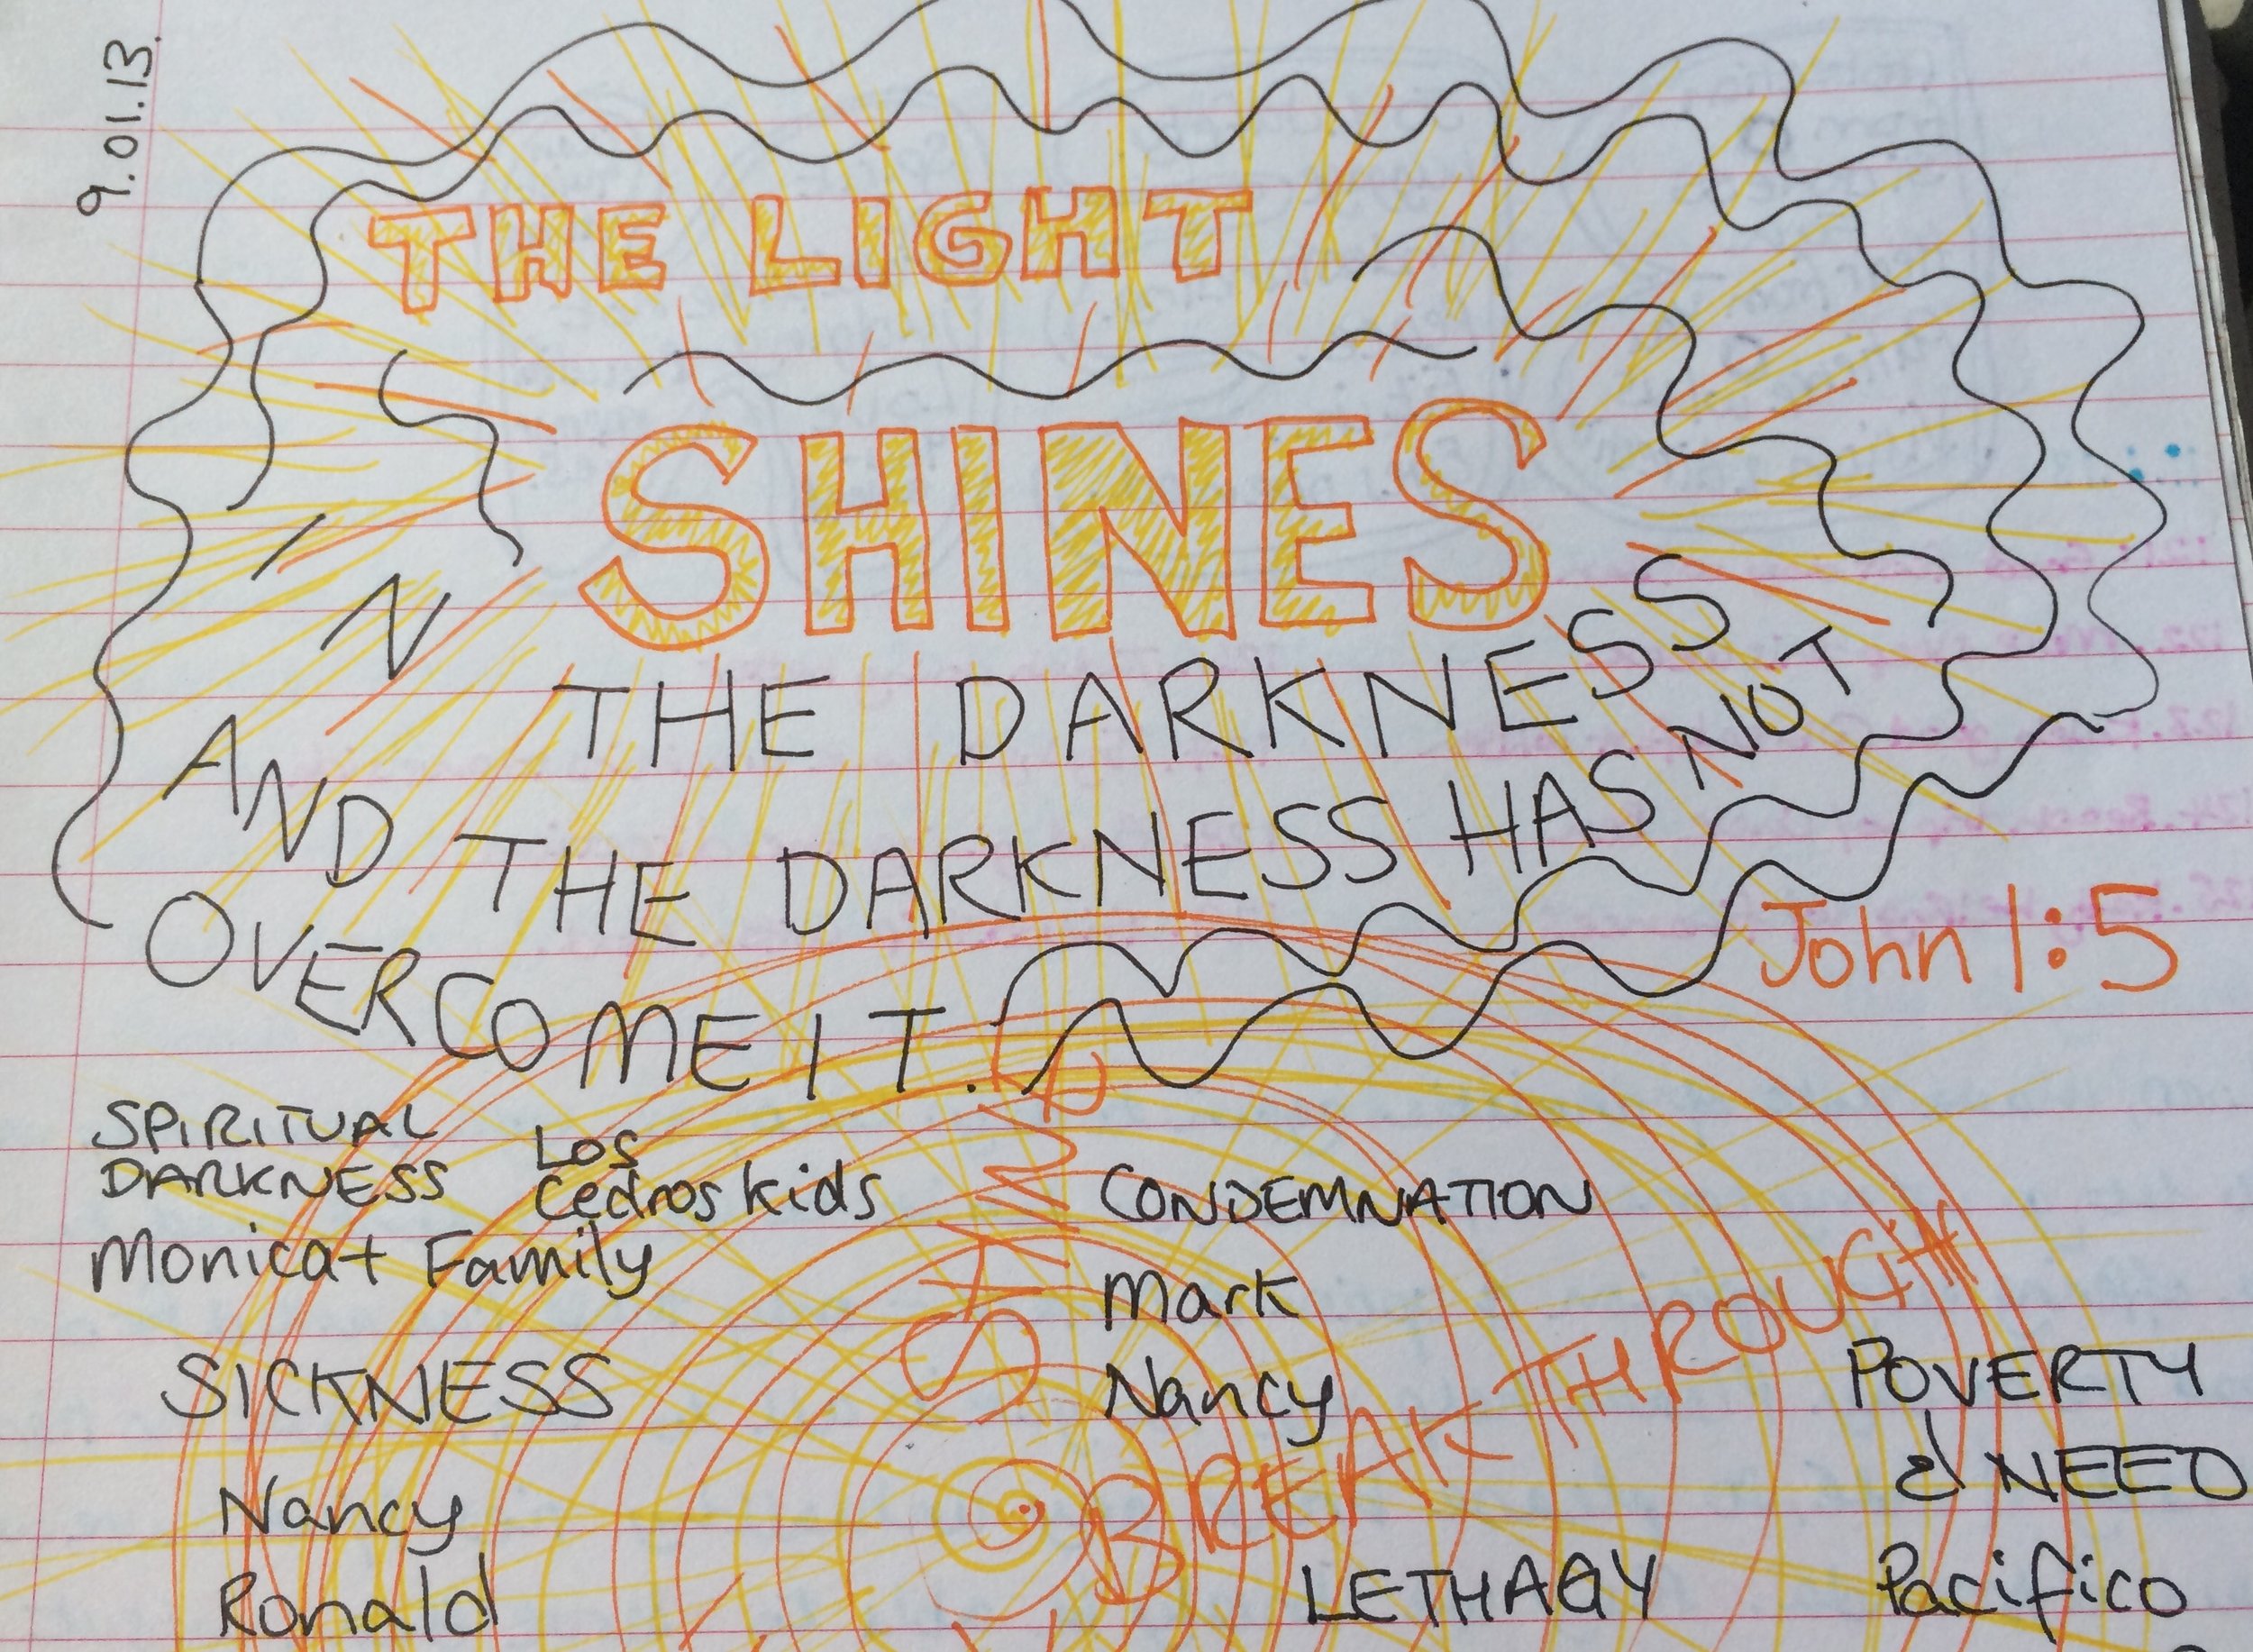 9.01.13.
THE LIGHT
SHINES
IN
THE DARKNESS
AND THE DARKNESS HAS NOT
OVERCOME IT.
John 1:5
SPIRITUAL
DARKNESS
Monica + Family
Los
Cedros kids
SICKNESS
Nancy
Ronald
CONDEMNATION
Mark
Nancy
BREAK THROUGH
LETHAGY
POVERTY
& NEED
Pacifico